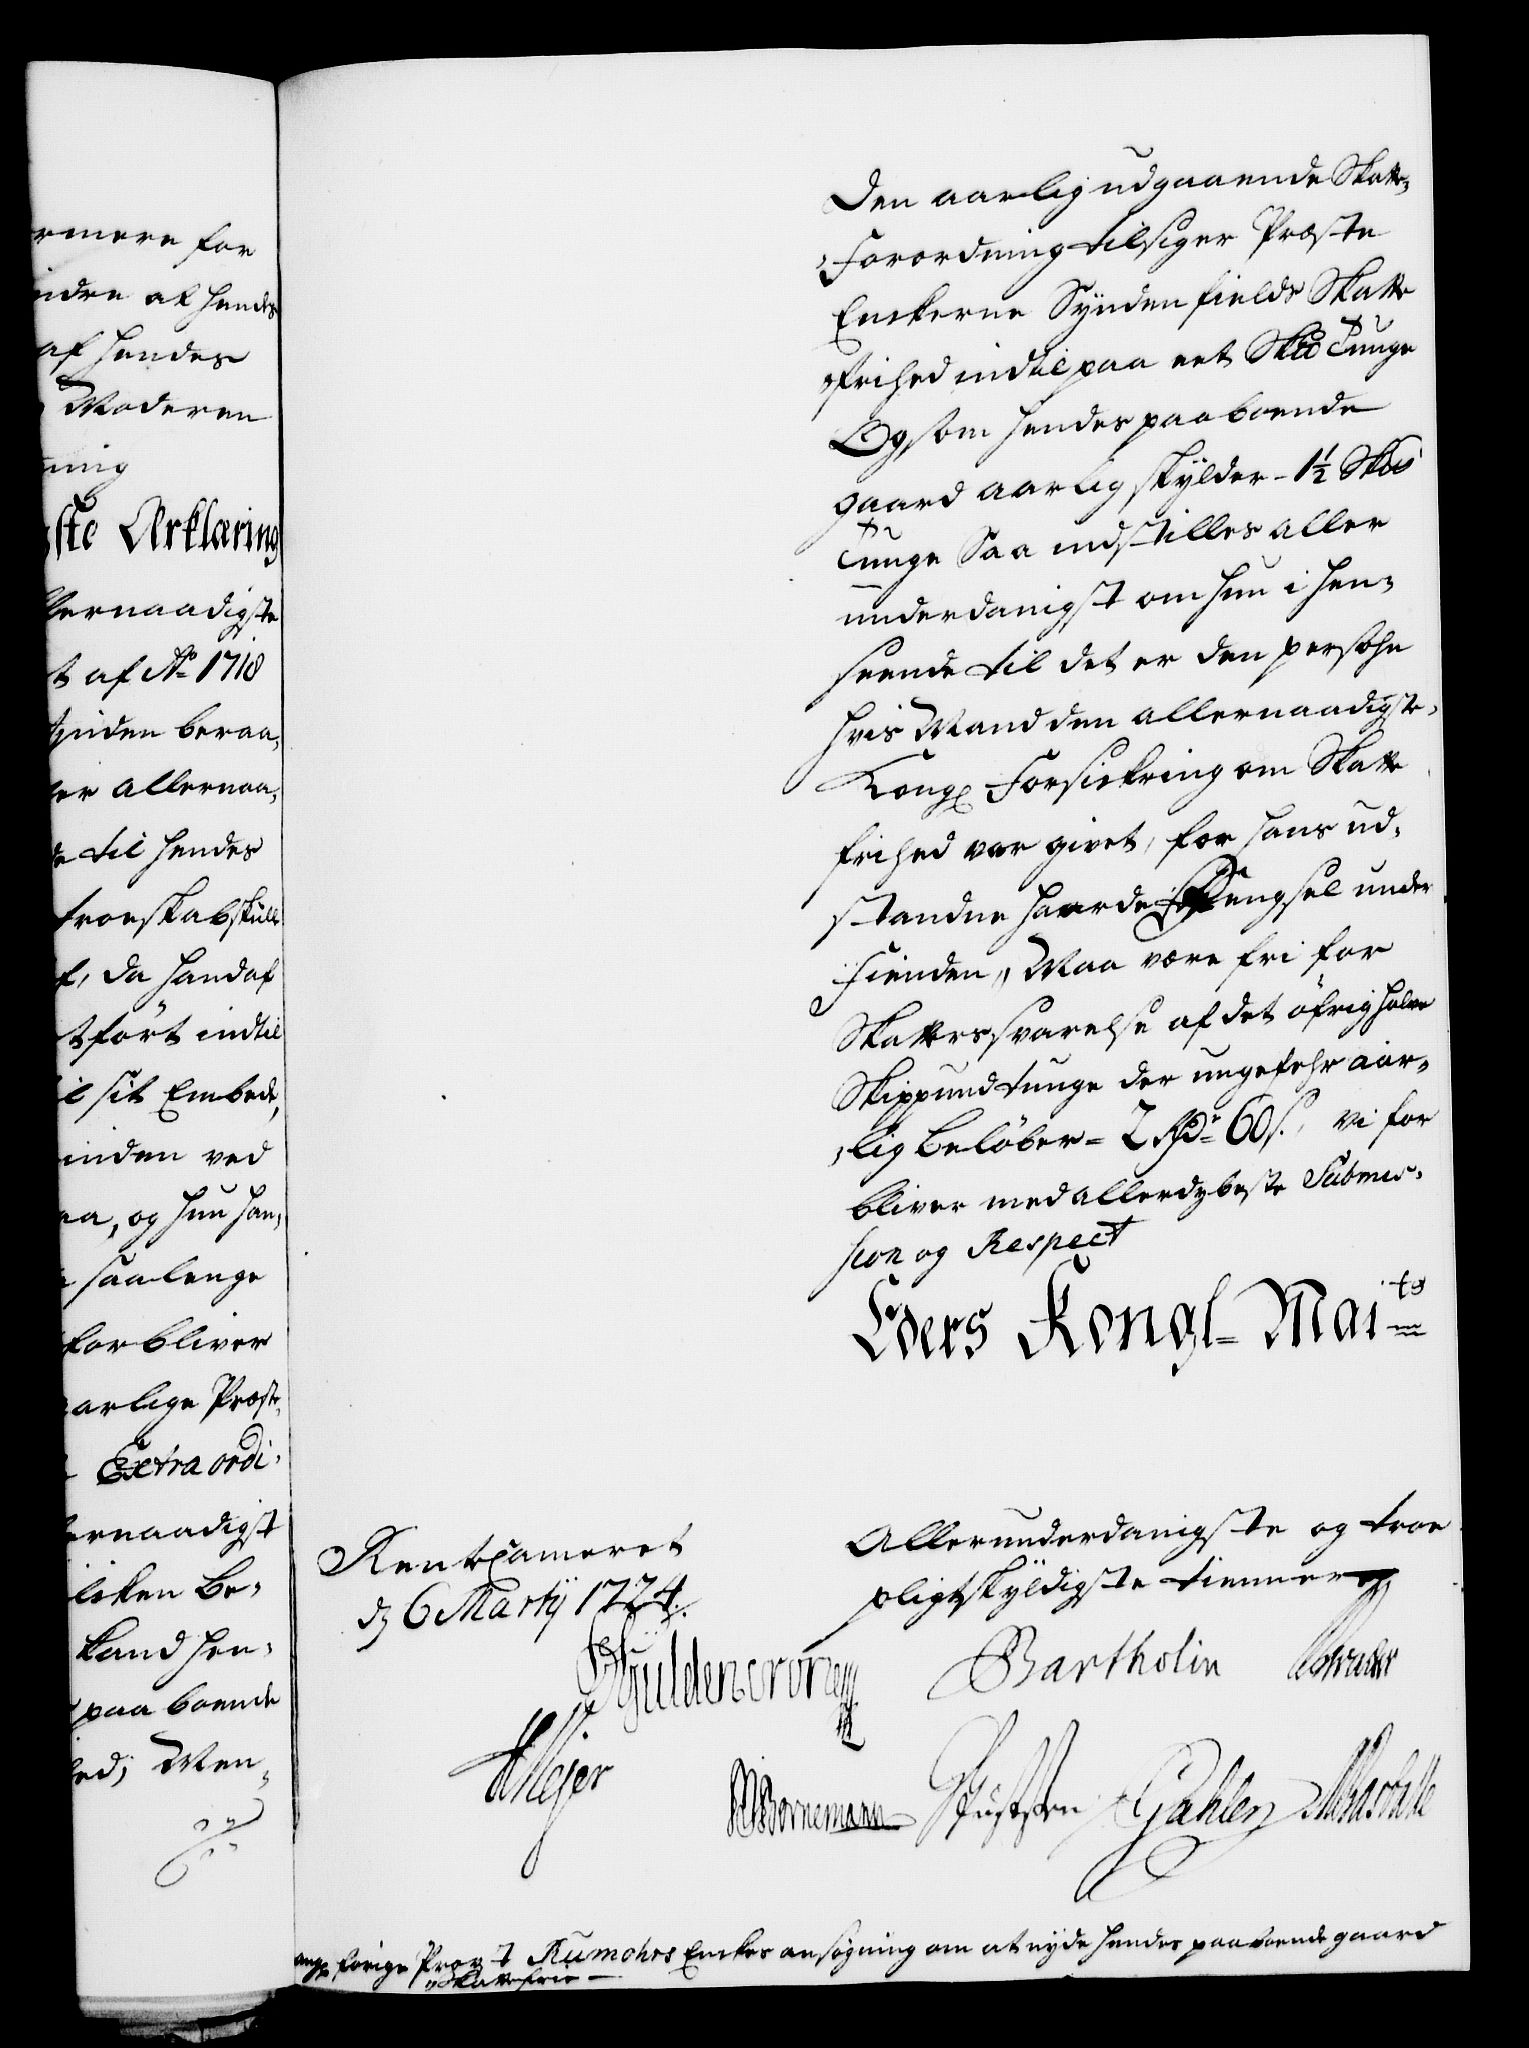 ermere for
indre at hendes
af hendes
Moderen
ning
ste Erklæring
llernaadigste
t af Ao 1718
beraa,
er allernaa,
e til hendes
troeskabskuld
f, da hand af
tført indtil
il sit Embede,
inden ved
aa, og hun han,
saalenge
forbliver
aarlige Præste,
Extraordi,
ernaadigst
Be,
kand hen,
paaboende
ed; Men,
Den aarlig udgaaende Skatte,
Forordning tilsiger Præste
Enckerne Synden fields Skatte
frihed indtil paa eet Sk℔ Tunge
Og som hendes paaboende
gaard aarlig skylder - 1½ Sk℔
Tunge Saa indstilles aller
underdanigst om hun i hen,
seende til det er den persohn
hvis Mand den allernaadigste,
Kongl Forsickring om Skatte
frihed var givet, for hans ud,
standne haarde Fengsel under
Fienden, Maa være fri for
Skatters svarelse af det öfrig halve
Skippund tunge der ungefehr aar,
lig beløber = 2 Rdr 60 s., vi for
bliver med allerdybeste Submis,
sion og Respect
Eders Kongl= Maits
Allerunderdanigste og troe
pligtskyldigste tienner
Rentecameret
d 6 Martij 1724.
Güldencrone Bartholin Schrader
Mejer
Bornemann Gustsen Gahlen
forige Provst Rumohrs Enckes ansøgning om at nyde hendes paaboende gaard
skattefrie